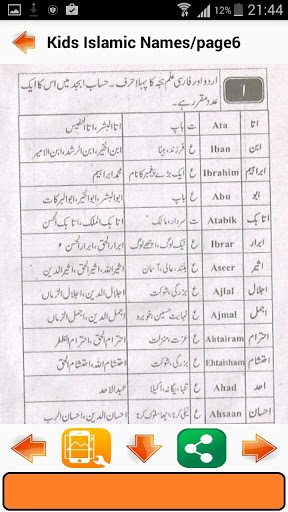 21:44
Kids Islamic Names/page6
ا اردو اور فارسی علم ہجّہ کا پہلا حرف۔ حساب ابجد میں اس کا ایک
عدد مقرر ہے۔
اتا Ata ت باپ اتا البشر، اتا النفیس
ابن Iban ع فرزند، بیٹا ابن الخیر، ابن الرشد، ابن الامیر
ابراہیم Ibrahim ع ایک بڑے پیغمبر کا نام محمد ابراہیم
ابو Abu ع باپ ابو البشر، ابو الخیر، ابو البرکات
اتابک Atabik ت سردار، مالک اتابک الملک، اتابک الحسن
ابرار Ibrar ع نیک لوگ، اچھے لوگ ابرار الحق، ابرار الحسن
اثیر Aseer ع بلند، عالی، آسمان اثیر اللہ، اثیر الحق، اثیر الدین
اجلال Ajlal ع بزرگی، شوکت اجلال الدین، اجلال الزماں
اجمل Ajmal ع نہایت حسین، خوبرو اجمل الدین، اجمل الزماں
احترام Ahtairam ع عزت، منزلت احترام الحق، احترام الظفر
احتشام Ehtaisham ع بزرگی، شوکت احتشام اللہ، احتشام الحق
احد Ahad ع تنہا، یگانہ، اکیلا عبدالاحد
احسان Ahsaan ع نیکی کرنا، اچھا سلوک کرنا احسان الدین، احسان الرب